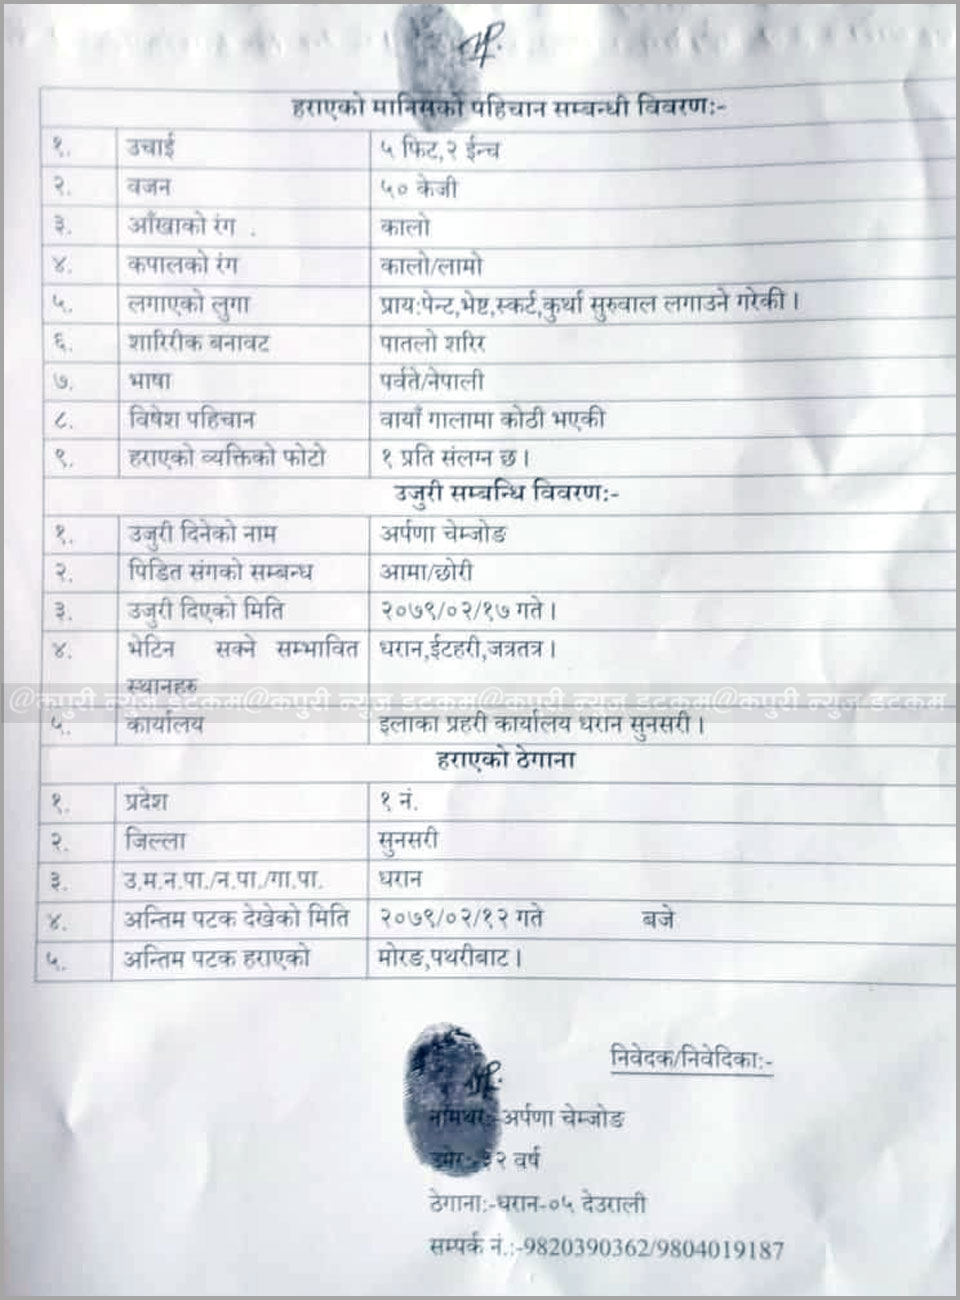 हराएको मानिसको पहिचान सम्बन्धी विवरण:-
१. उचाई ५ फिट,२ ईन्च
२. वजन ५० केजी
३. आँखाको रंग . कालो
४. कपालको रंग कालो/लामो
५. लगाएको लुगा प्राय:पेन्ट,भेष्ट,स्कर्ट,कुर्था सुरुवाल लगाउने गरेकी ।
६. शारिरीक बनावट पातलो शरिर
७. भाषा पर्वते/नेपाली
८. विषेश पहिचान वायाँ गालामा कोठी भएकी
९. हराएको व्यक्तिको फोटो १ प्रति संलग्न छ ।
उजुरी सम्बन्धि विवरण:-
१. उजुरी दिनेको नाम अर्पणा चेम्जोङ
२. पिडित संगको सम्बन्ध आमा/छोरी
३. उजुरी दिएको मिति २०७९/०२/१७ गते ।
४. भेटिन सक्ने सम्भावित धरान,ईटहरी,जत्रतत्र ।
स्थानहरु
@कपुरी न्युज डटकम@कपुरी न्युज डटकम@कपुरी न्युज डटकम@कपुरी न्युज डटकम
५. कार्यालय इलाका प्रहरी कार्यालय धरान सुनसरी ।
हराएको ठेगाना
१. प्रदेश १ नं.
२. जिल्ला सुनसरी
३. उ.म.न.पा./न.पा./गा.पा. धरान
४. अन्तिम पटक देखेको मिति २०७९/०२/१२ गते बजे
५. अन्तिम पटक हराएको मोरङ,पथरीबाट ।
निवेदक/निवेदिका:-
नामथर:-अर्पणा चेम्जोङ
उमेर:-३२ वर्ष
ठेगाना:-धरान-०५ देउराली
सम्पर्क नं.:-9820390362/9804019187